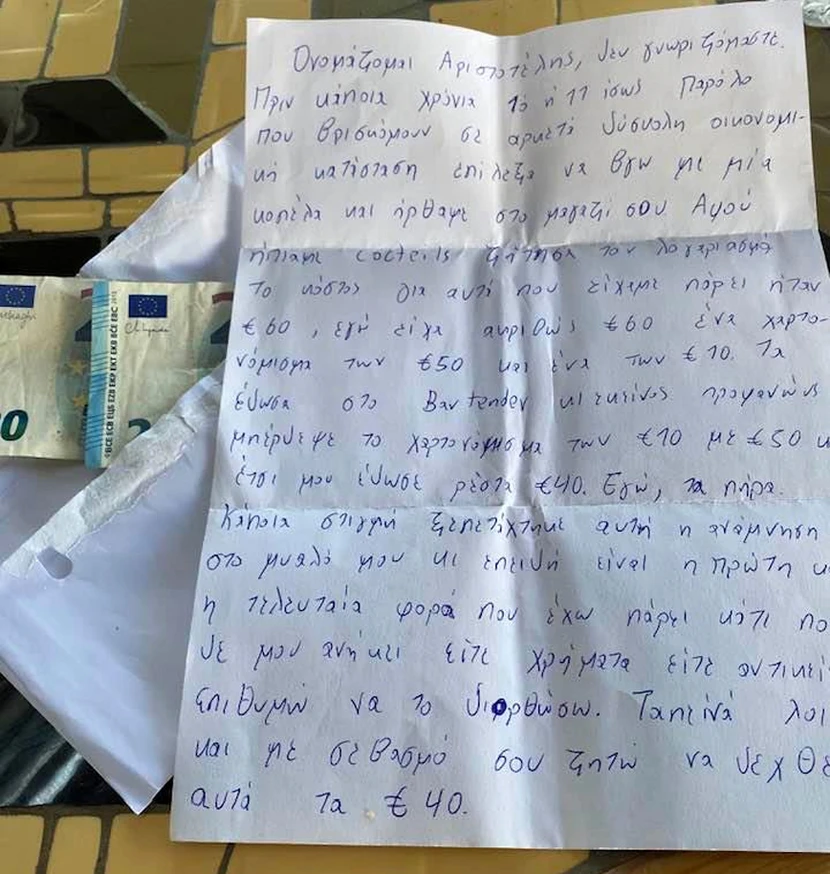 Ονομάζομαι Αριστοτέλης, δεν γνωριζόμαστε.
Πριν κάποια χρόνια 10 ή 11 ίσως Παρόλο
που βρισκόμουν σε αρκετά δύσκολη οικονομι-
κή κατάσταση επίλεξα να βγω με μία
κοπέλα και ήρθαμε στο μαγαζί σου. Αφού
ήπιαμε cocteils ζήτησα τον λογαριασμό
Το κόστος για αυτά που είχαμε πάρει ήταν
€60, εγώ είχα ακριβώς €60 ένα χαρτο-
νόμισμα των €50 και ένα των €10. Τα
έδωσα στο Bartender κι εκείνος προφανώς
μπέρδεψε το χαρτονόμισμα των €10 με €50 κ
έτσι μου έδωσε ρέστα €40. Εγώ, τα πήρα.
Κάποια στιγμή ξεπετάχτηκε αυτή η ανάμνηση
στο μυαλό μου κι επειδή είναι η πρώτη κ
η τελευταία φορά που έχω πάρει κάτι πο
δε μου ανήκει είτε χρήματα είτε αντικεί
Επιθυμώ να το διορθώσω. Ταπεινά λοι
και με σεβασμό σου ζητώ να δεχθε
αυτά τα €40.
BCE ECB ЕЦБ EZB EKP EKT EKB BCE EBC